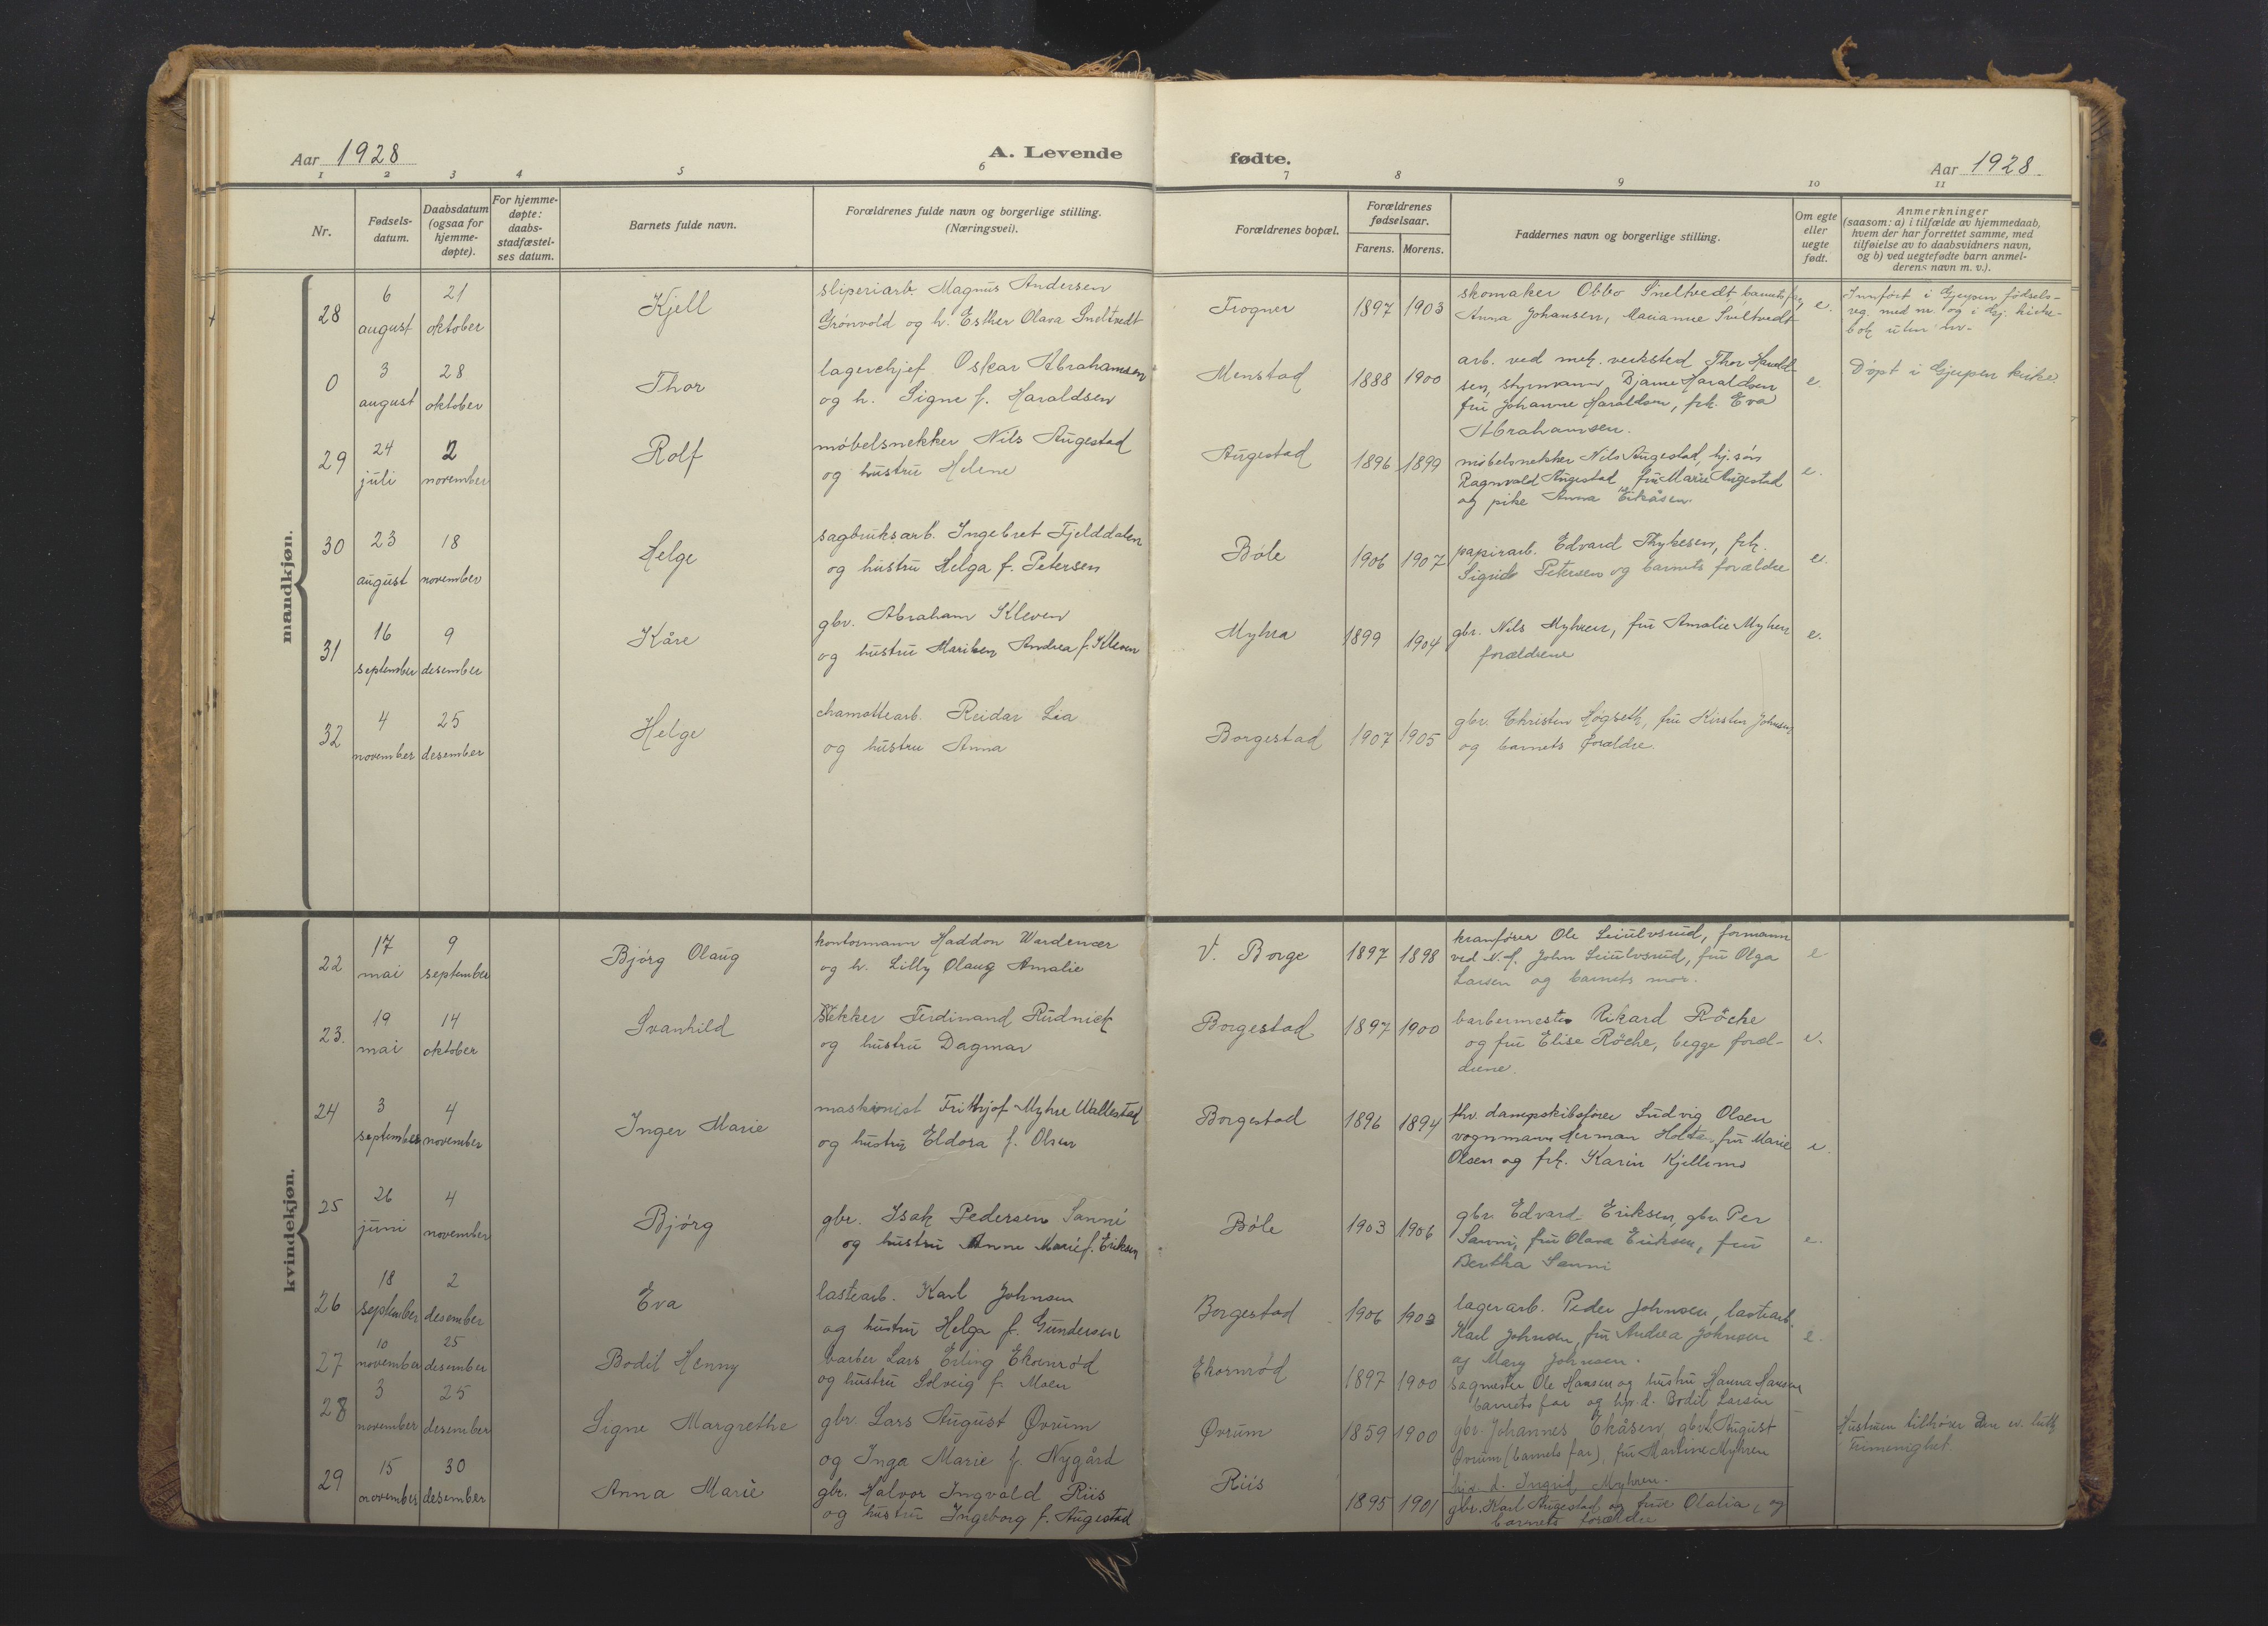 Aar 1928
A. Levende
fødte.
Aar 1928
1 2 3 4 5 6 7 8 9 10 11
Nr.
Fødsels-
datum.
Daabsdatum
(ogsaa for
hjemme-
døpte).
For hjemme-
døpte:
daabs-
stadfæstel-
ses datum.
Barnets fulde navn.
Forældrenes fulde navn og borgerlige stilling.
(Næringsvei).
Forældrenes bopæl.
Forældrenes
fødselsaar.
Farens. Morens.
Faddernes navn og borgerlige stilling.
Om egte
eller
uegte
født.
Anmerkninger
(saasom: a) i tilfælde av hjemmedaab,
hvem der har forrettet samme, med
tilføielse av to daabsvidners navn,
og b) ved uegtefødte barn anmel-
derens navn m. v.).
mandkjøn.
28
6
august
21
oktober
Kjell
sliperiarb. Magnus Andersen
Grönvold og h. Esther Olava Sneltvedt
Frogner
1897 1903
skomaker Obbo Sneltvedt, barnets far,
Anna Johansen, Marianne Sneltvedt
e.
Innført i Gjerpen fødsels-
reg. med nr. og i Gj. kirke-
bok uten nr.
0
3
august
28
oktober
Thor
lagerchjef Oskar Abrahamsen
og h. Signe f. Haraldsen
Menstad
1888 1900
arb. ved mek. verksted Thor Harald-
sen, styrmann Bjarne Haraldsen
fru Johanne Haraldsen, frk. Eva
Abrahamsen.
e.
Döpt i Gjerpen kirke.
29
24
juli
2
november
Rolf
möbelsnekker Nils Augestad
og hustru Helene
Augestad
1896 1899
möbelsnekker Nils Augestad, hj. sön
Ragnvald Augestad, fru Marie Augestad
og pike Anna Eikåsen
e.
30
23
august
18
november
Helge
sagbruksarb. Ingebret Fjelddalen
og hustru Helga f. Petersen
Böle
1906 1907
papirarb. Edvard Thykesen, frk.
Sigrid Petersen og barnets forældre
e.
31
16
september
9
desember
Kåre
gbr. Abraham Kleven
og hustru Mariken Andrea f. Kleven
Myhra
1899 1904
gbr. Nils Myhren, fru Amalie Myhren
forældrene
e.
32
4
november
25
desember
Helge
chamottearb. Reidar Lia
og hustru Anna
Borgestad
1907 1905
gbr. Christen Høgseth, fru Kirsten Johnsen
og barnets forældre.
kvindekjøn.
22
17
mai
9
september
Bjórg Olaug
kontormann Haddon Wardenær
og h. Lilly Olaug Amalie
V. Borge
1897 1898
kranförer Ole Leiulvsrud, formann
ved N.f. John Leiulvsrud, fru Olga
Larsen og barnets mor.
e
23.
19
mai
14
oktober
Svanhild
Ferdinand Rudnick
og hustru Dagmar
Borgestad
1897 1900
barbermester Rikard Röcke
og fru Elise Röcke, begge foræl-
drene.
e.
24
3
september
4
november
Inger Marie
maskinist Frithjof Myhre Wallestad
og hustru Eldora f. Olsen
Borgestad
1896 1894
fhv. dampskibsförer Ludvig Olsen
vognmann Herman Holte, fru Marie
Olsen og frk. Karin Kjellemo
e.
25
26
juni
4
november
Bjórg
gbr. Isak Pedersen Sanni
og hustru Anne Marie f. Eriksen
Böle
1903 1906
gbr. Edvard Eriksen, gbr. Per
Sanni, fru Olava Eriksen, fru
Bertha Sanni
e.
26
18
september
2
desember
Eva
lastearb. Karl Johnsen
og hustru Helga f. Gundersen
Borgestad
1906 1903
lagerarb. Peder Johnsen, lastearb.
Karl Johnsen, fru Andrea Johnsen
og Mary Johnsen.
e.
27
10
november
25
desember
Bodil Henny
barber Lars Erling Ekornröd
og hustru Solveig f. Moen
Ekornröd
1897 1900
sagmester Ole Hansen og hustru Hanna Hansen
barnets far og hj. d. Bodil Larsen
28
3
november
25
desember
Signe Margrethe
gbr. Lars August Øvrum
og Inga Marie f. Nygård
Øvrum
1859 1900
gbr. Johannes Ekåsen, gbr. L. August
Øvrum (barnets far), fru Martine Myhren
hj. d. Ingrid Myhren.
Hustruen tilhører den ev. luth.
frimenighet.
29
15
november
30
desember
Anna Marie
gbr. Halvor Ingvald Riis
og hustru Ingeborg f. Augestad
Riis
1895 1901
gbr. Karl Augestad og frue Olalia, og
barnets forældre